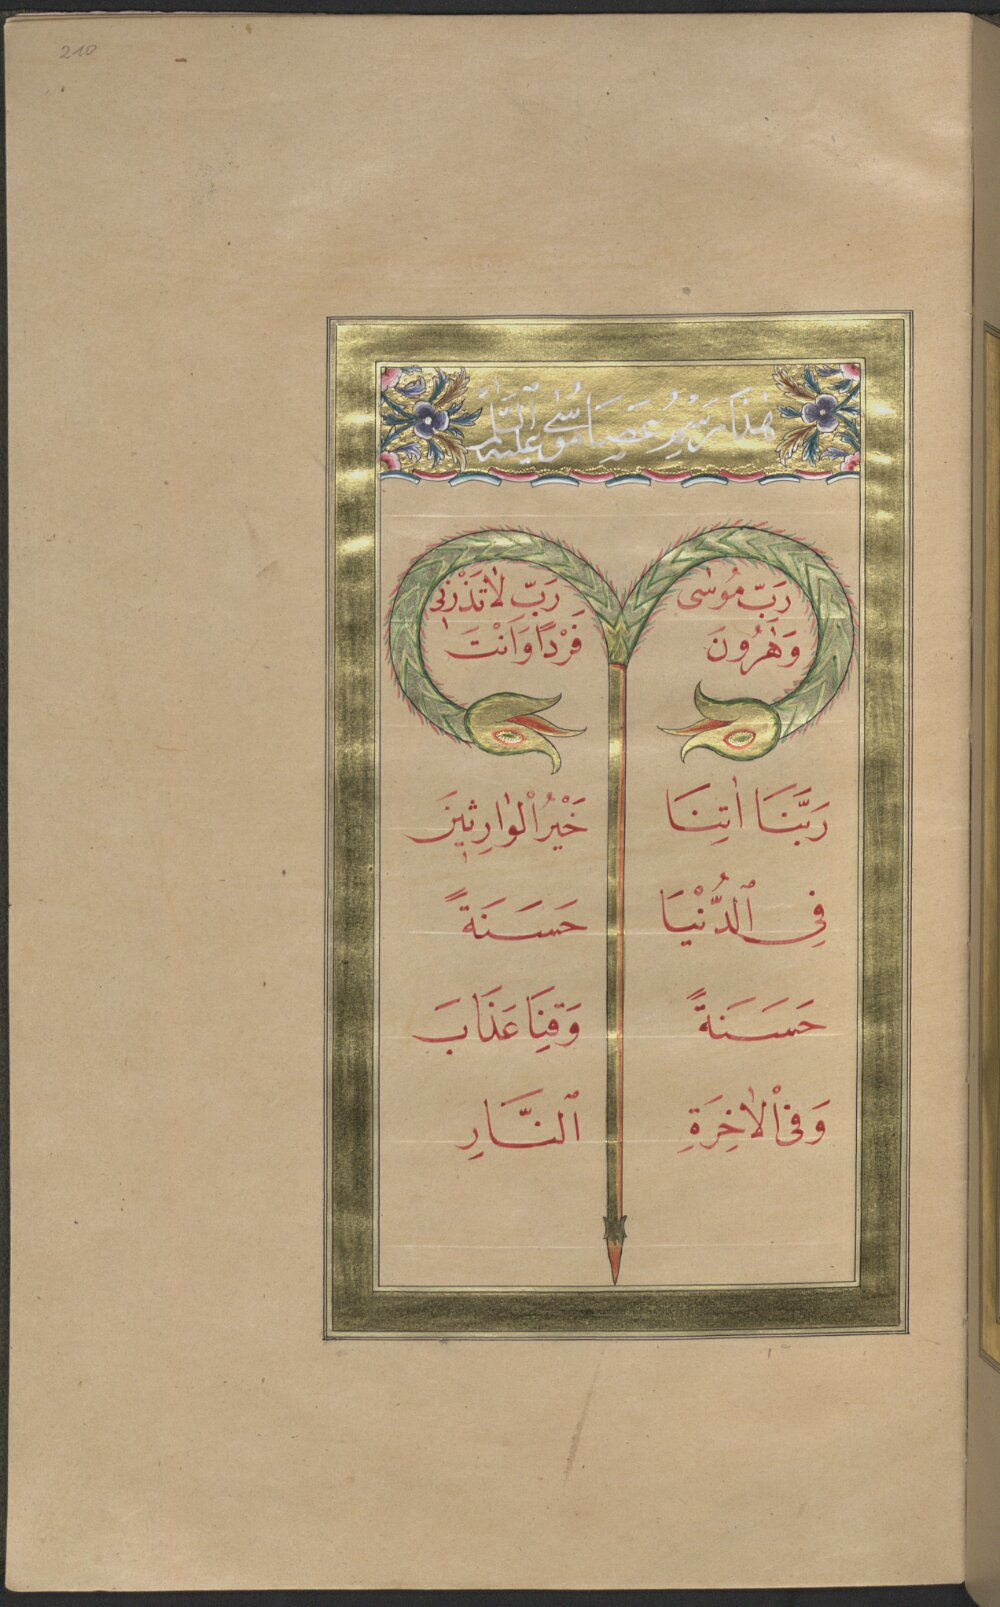 210
هٰذَا رَسْمُ عَصَا مُوسٰى عَلَيْهِ ٱلسَّلَامُ
رَبِّ مُوسٰى
وَهٰرُونَ
رَبِّ لَا تَذَرْنٖى
فَرْدًا وَاَنْتَ
رَبَّنَا اٰتِنَا
خَيْرُ الْوٰارِثٖينَ
فِى ٱلدُّنْيَا
حَسَنَةً
حَسَنَةً
وَقِنَا عَذَابَ
وَفِى الْاٰخِرَةِ
ٱلنَّارِ